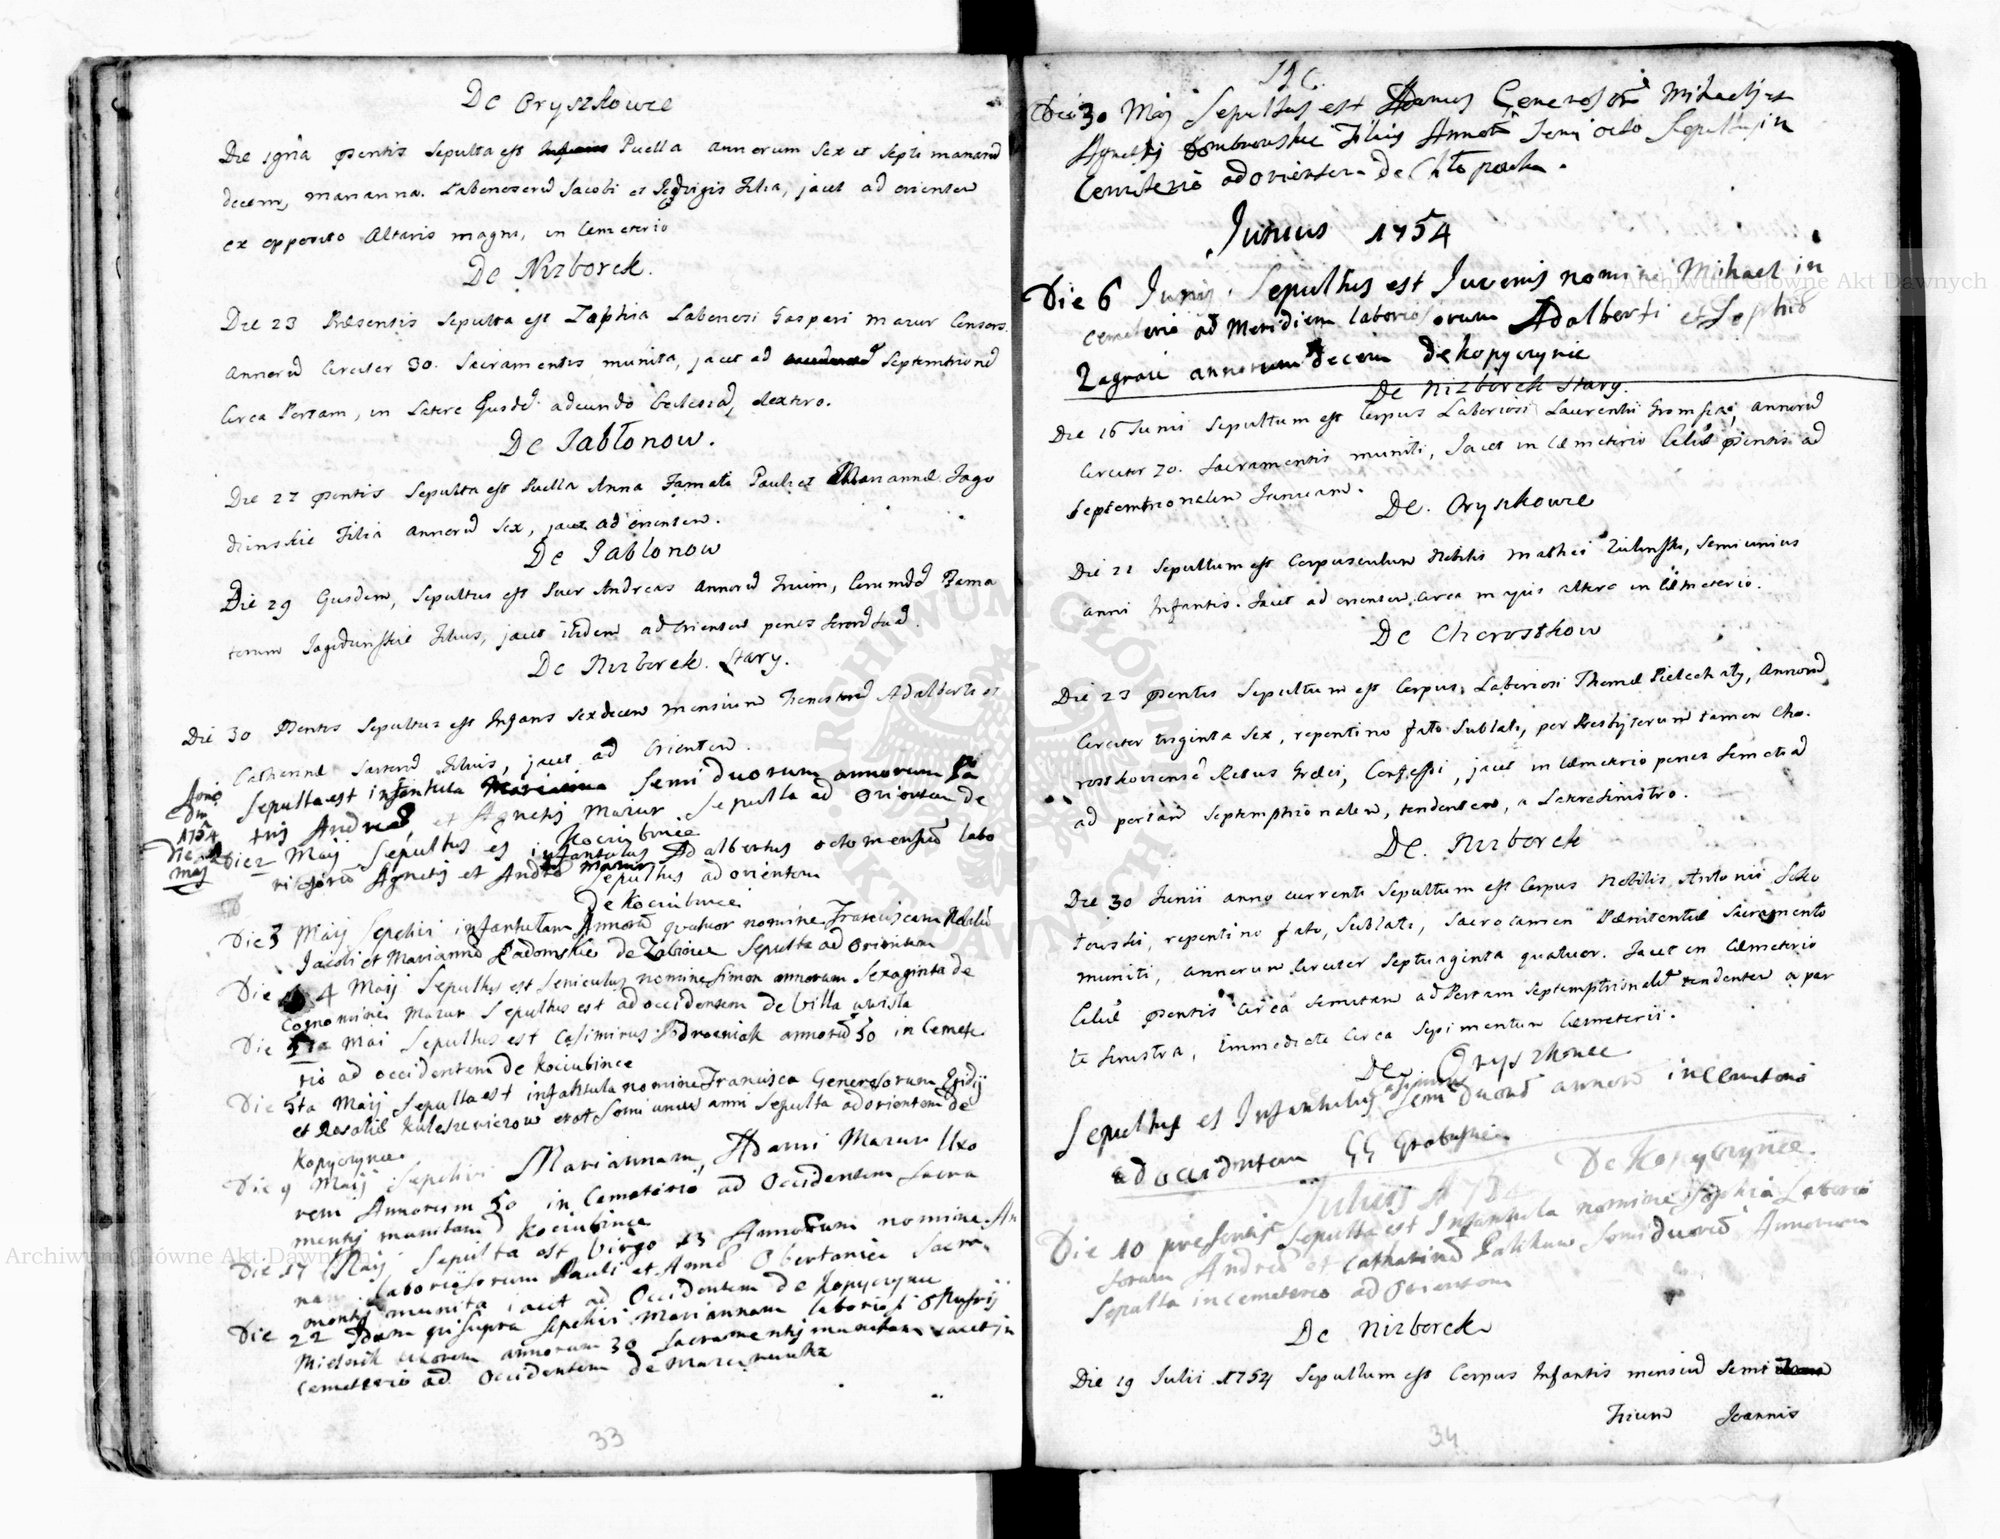 De Oryszkowce
Die 19na pentis Sepulta est Puella annorum Sex et Septimanarū
decem, marianna. Laboriosorū Jacobi et Jedvigis Filia, jacet ad orientem
ex opposito Altaris magni, in Cemeterio
De Nizborek.
Die 23 Præsentis Sepulta est Zophia Laboriosi Gaspari mazur Consors.
Annorū Circiter 30. Sacramentis munita, jacet ad Septemtrionē
Circa Portam, in Latere Ejusdē adeundo Eclesiā, dextero.
De Jabłonow.
Die 27 pentis Sepulta est Puella Anna Famati Pauli et Mariannæ Jago
dzinskie Filia Annorū Sex, jacet ad orientem.
De Jablonow
Die 29 Ejusdem, Sepultus est Puer Andreas Annorū Trium, Eorumdē Fama
torum Filius, jacet itidem ad Orientem penes Sororē Suā.
De Nizborek. Stary.
Die 30 Pentis Sepultus est Infans Sexdecem mensium Honestorū Adalberti et
Catherinæ Filius, jacet ad Orientem.
Sepulta est infantula Semi duorum annorum
Andreæ et Agnetis Mazur Sepulta ad Orientem de
Kociubince
Anno
Dni
1754
Die
Maj
Die 2 Maij Sepultus es infantulus Adalbertus octo mensiū labo
Agnetis et Andreæ Mazur Sepultus ad orientem
de Kociubince
Die 3 Maij Sepelivi infantulam Annorū quatuor nomine Franciscam Nobiliū
Jacobi et Mariannæ Radomskie de Zabince Sepulta ad Orientem
Die 4 Maij Sepultus est Seniculus nomine Simon annorum Sexaginta de
Cognomine Mazur Sepultus est ad occidentem de Villa
Die 5ta Mai Sepultus est Casimirus annorū 50 in Cemete
rio ad occidentem de Kociubince
Die 5ta Maij Sepulta est infantula nomine Francisca Generosorum Egidij
et Rosaliæ erat Semi unius anni Sepulta ad orientem de
Kopyczynce.
Die 9 Maij Sepelivi Mariannam, Adami Mazur Uxo
rem Annorum 50 in Cemeterio ad Occidentem Sacra
mentis munitam de Kociubince
Die 17 Maij Sepulta est Virgo 23 Annorum nomine An
na Laboriosorum Pauli et Annæ Sacra
mentis munita iacet ad Occidentem de Kopyczynce
Die 22 Idem qui supra Sepelivi Mariannam laboriosi
Mielnik uxorem annorum 30 Sacramentis munitam iacet in
Cemeterio ad Occidentem de
33
Die 30 Maj Sepultus est Adamus Generosorū Mihaelis et
Agnetis Dombrowskie Filius Annorū Semi octo Sepultus in
Cemiterio ad orientem de
Junius 1754
Die 6 Junij Sepultus est Juvenis nomine Mihael in
Cemeterio ad Meridiem laboriosorum Adalberti et Sophiæ
annorum decem de kopyczynce
De Nizborek Stary.
Die 16 Junii Sepultum est Corpus Laboriosi Laurentii annorū
Circiter 70. Sacramentis muniti, Jacet in Cæmeterio Eclæ pentis ad
Septemtrionalem Januam.
De. Oryszkowce
Die 21 Sepultum est Corpusculum Nobilis mathei Zielinski, Semi unius
anni Infantis. Jacet ad orientem circa majus altare in Cæmeterio.
De Chorostkow
Die 23 pentis Sepultum est Corpus Laboriosi Thomæ Annorū
Circiter triginta Sex, repentino fato Sublati, per Presbyterum tamen Cho.
rostkoviensē Ritus Græci, Confessi, jacet in Cæmeterio penes Semitā
ad portam Septemptrionalem, tendentem, a Latere Sinistro.
De. Nizborek
Die 30 Junii anno currenti Sepultum est Corpus Nobilis Antonii Soko
łowski, repentino fato, Sublati, Sacro tamen Pænitentiæ Sacramento
muniti, annorum Circiter Septuaginta quatuor. Jacet in Cæmeterio
Eclæ pentis circa Semitam ad Portam Septemptrionalē tendentem a par
te Sinistra, immediate Circa Sepimentum Cæmeterii.
De Oryszkowce
Casimirus
Sepultus es Infantulus Semi duorū annorū in Cemeterio
ad occidentem GG Grabinski
De Kopyczynce.
Julius
Die 10 presentis Sepulta est Infantula nomine Sophia Laborio
sorum Andreæ et Catharinæ Semi duorū Annorum
Sepulta in cemeterio ad Orientem
De Nizborek
Die 19 Julii 1754 Sepultum est Corpus Infantis mensiū Semi
Trium Joannis
34
Archiwum Główne Akt Dawnych
Archiwum Główne Akt Dawnych
ARCHIWUM GŁÓWNE AKT DAWNYCH